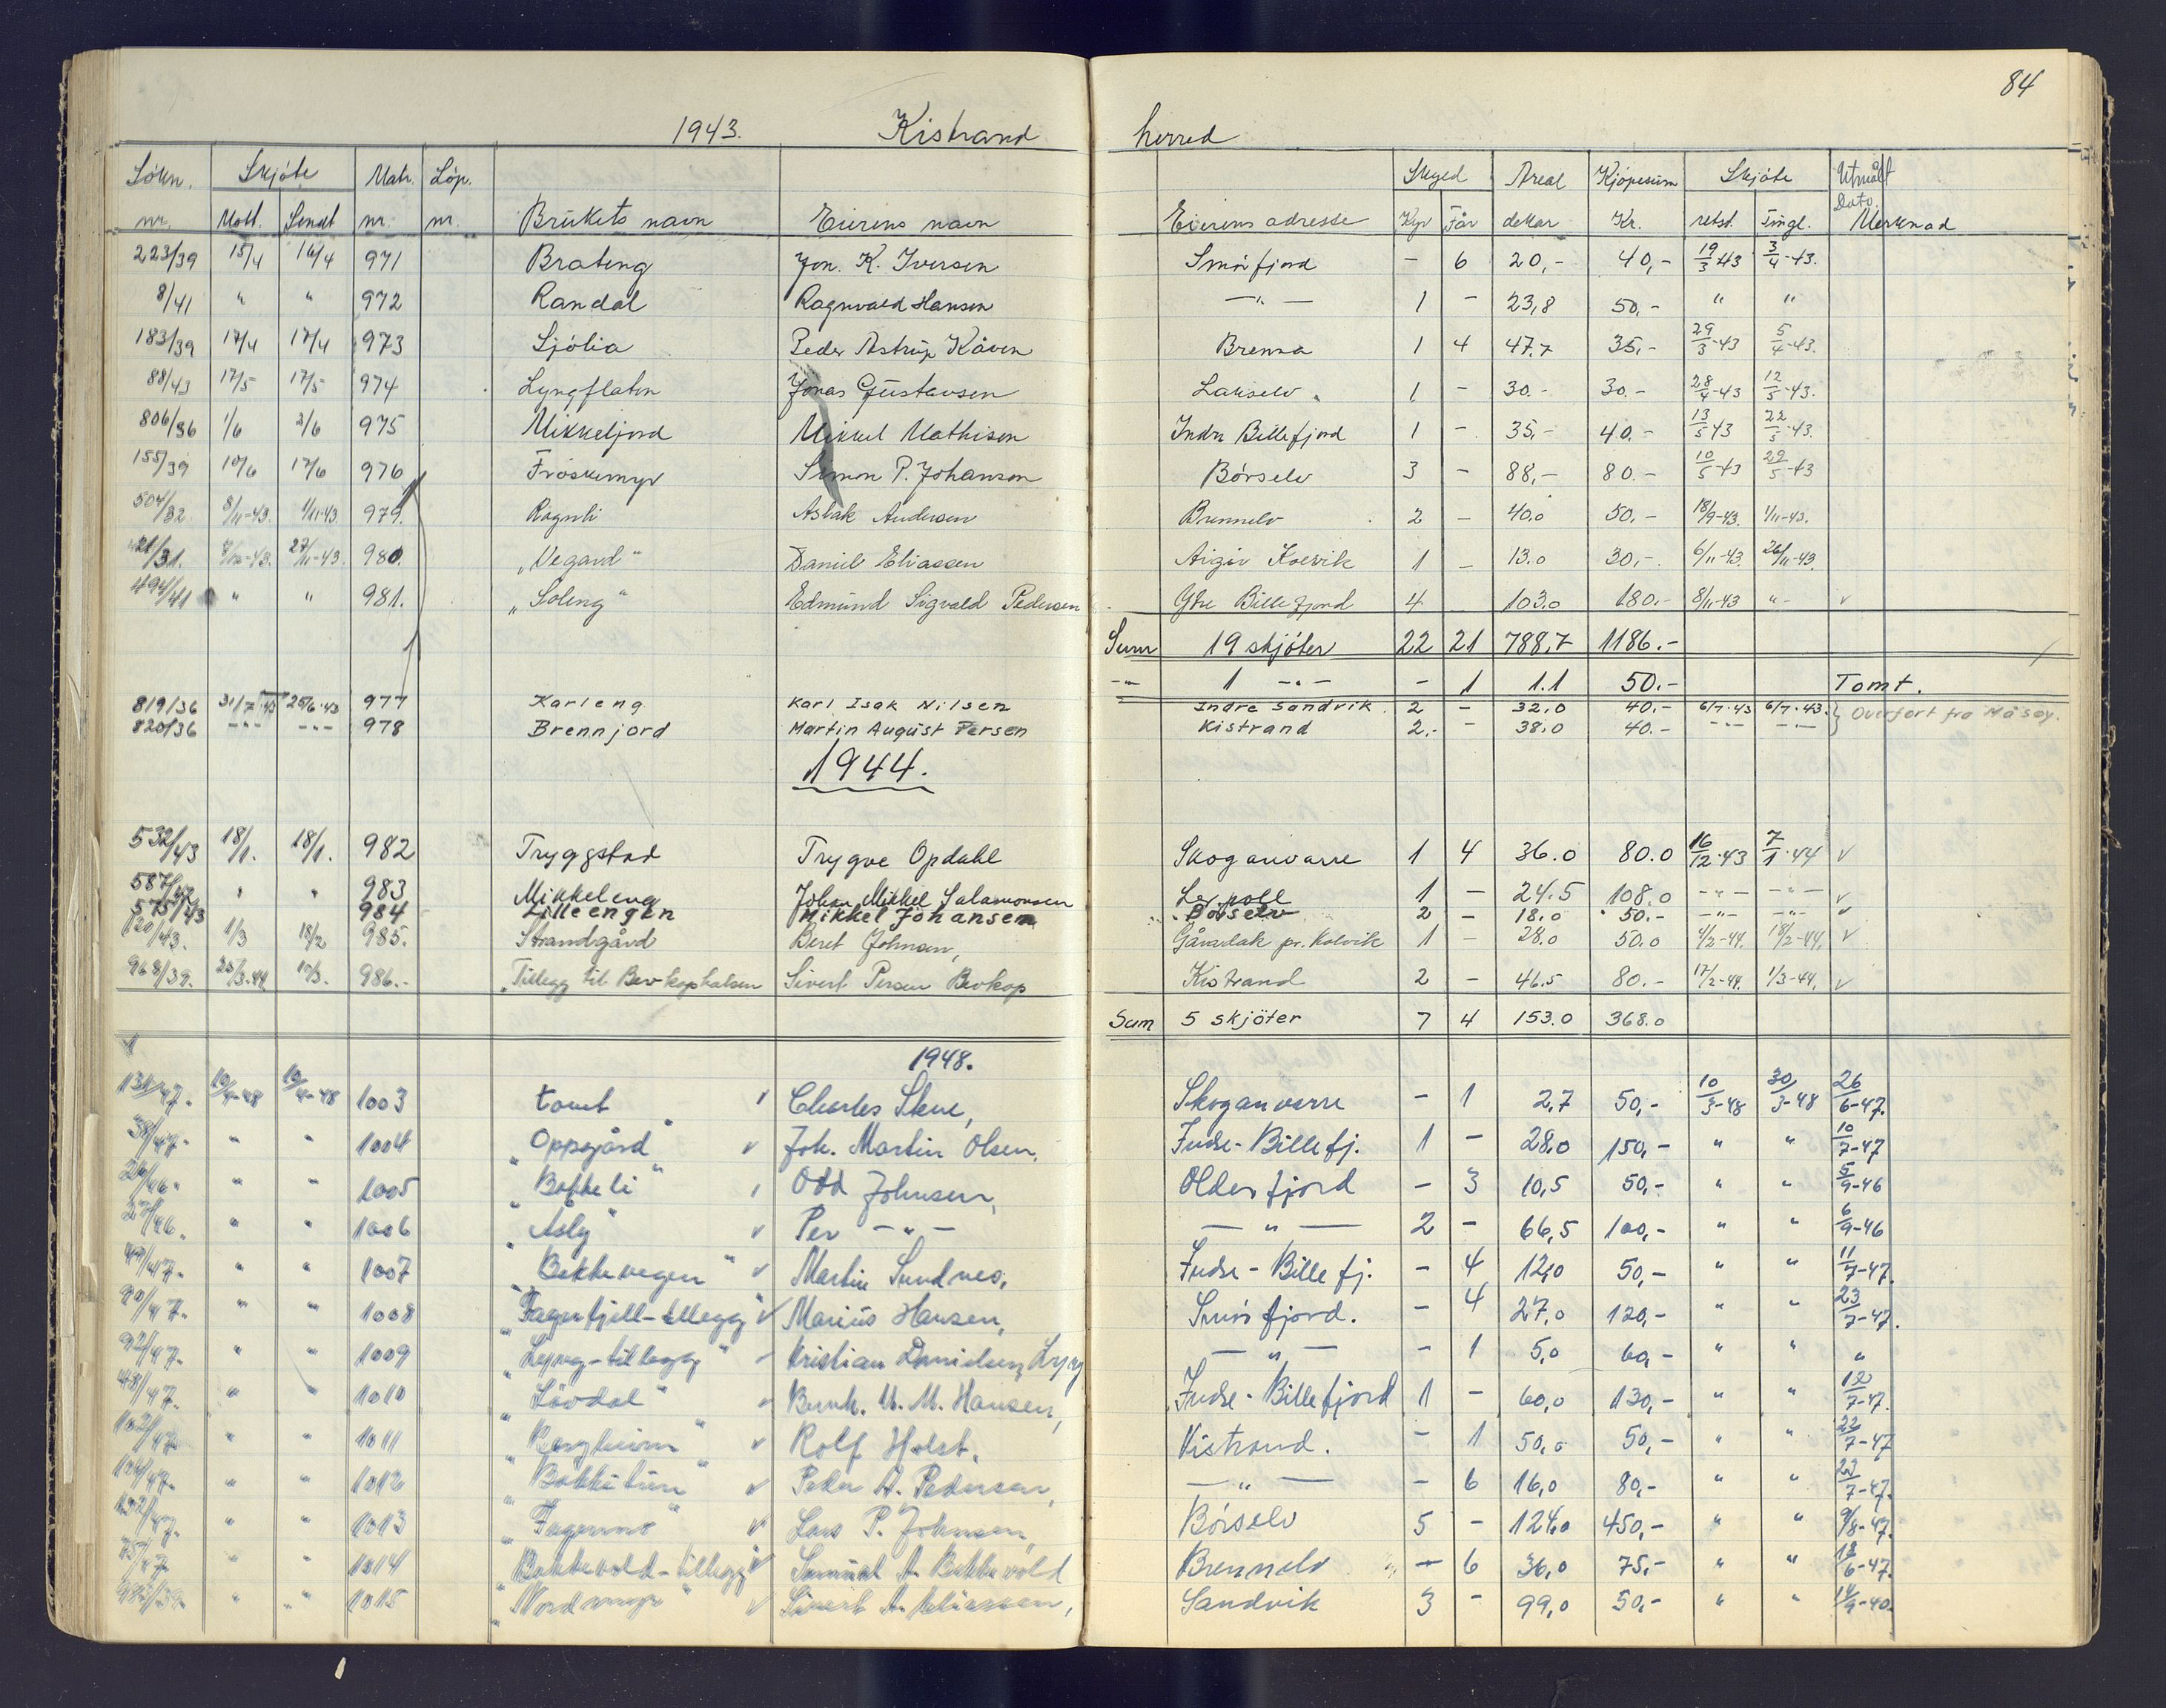 84
1943. Kistrand herred
Sökn. Skjöte Matr. Löp. Skyld Areal Kjöpesum Skjöte Utmålt Dato
nr. Mott. Sendt nr. nr. Brukets navn Eierens navn Eierens adresse Kyr Får dekar Kr. utst. Tingl. Merknad
223/39 15/4 16/4 971 Brateng Jon. K. Iversen Smörfjord - 6 20,- 40,- 19/3-43 3/4-43.
8/41 " " 972 Randal Ragnvald Hansen —"— 1 - 23,8 50,- " "
183/39 17/4 17/4 973 Sjölia Peder Astrup Kåven Brenna 1 4 47.7 35,- 29/3-43 5/4-43.
88/43 17/5 17/5 974 Lyngflaten Jonas Gustavsen Lakselv 1 - 30.- 30.- 28/4-43 12/5-43.
806/36 1/6 2/6 975 Mikkeljord Mikkel Mathisen Indre Billefjord 1 - 35,- 40.- 13/5-43 22/5-43.
155/39 10/6 17/6 976 Fröskemyr Simon P. Johansen Börselv 3 - 88,- 80.- 10/5-43 29/5-43
504/32 8/11-43. 9/11-43 979. Rognli Aslak Andersen Brennelv 2 - 40.0 50,- 18/9-43. 1/11-43.
421/31. 8/12-43. 27/11-43. 980. "Vegard" Daniel Eliassen Aigir Kolvik 1 - 13.0 30,- 6/11-43. 26/11-43.
494/41 " " 981. "Soleng" Edmund Sigvald Pedersen Ytre Billefjord 4 103.0 180.- 8/11-43 "- v
Sum 19 skjöter 22 21 788,7 1186.-
-"- 1 -"- - 1 1.1 50.- Tomt.
819/36 31/7-43 25/6-43 977 Karleng Karl Isak Nilsen Indre Sandvik 2 - 32,0 40.- 6/7-43 6/7-43. } Overfört fra Måsøy.
820/36 -"- -"- 978 Brennjord Martin August Persen Kistrand 2.- - 38.0 40.- -"- -"-
1944.
532/43 18/1. 18/1. 982 Tryggstad Trygve Opdahl Skoganvarre 1 4 36.0 80.0 16/12-43 7/1-44 v
587/42 " " 983 Mikkeleng Johan Mikkel Salamonsen Lerpoll 1 - 24.5 108.0 -"- -"- v
575/43 984 Lilleengen Mikkel Johansen Börselv 2 - 18.0 50.- -"- -"- v
120/43. 1/3 18/2 985. Strandgård Beret Johnsen, Gåradak pr. Kolvik 1 - 28.0 50.0 4/2-44. 18/2-44. v
968/39. 25/3-44 10/3. 986.- "Tillegg til Bevkophalsen Sivert Persen Bevkop Kistrand 2 - 46.5 80.- 17/2-44. 1/3-44. v
Sum 5 skjöter 7 4 153.0 368.0
1948.
131/47. 10/4-48 10/4-48 1003 tomt Charles Skue, Skoganvarre - 1 2,7 50,- 10/3-48 30/3-48 26/6-47.
38/47. " " 1004 "Oppgård" v Joh. Martin Olsen, Indre-Billefj. 1 - 28,0 150,- " " 10/7-47
26/46. " " 1005 "Bakkeli" Odd Johnsen, Olderfjord - 3 10,5 50,- " " 5/9-46
27/46. " " 1006 "Asly" v Per —"— —"— 2 - 66,5 100,- " " 6/9-46
47/47. " " 1007 "Bekkevegen" v Martin Sundnes, Indre-Billefj. - 4 12,0 50,- " " 11/7-47.
90/47. " " 1008 "Fagerfjell-tillegg" v Marius Hansen, Smörfjord. - 4 27,0 120,- " " 23/7-47.
92/47. " " 1009 "Lyng-tillegg" v Kristian Danielsen Lyng —"— - 1 5,0 60,- " " "
48/47. " " 1010 "Lövdal" v Bernh. M. M. Hansen, Indre-Billefjord 1 - 60,0 130,- " " 12/7-47.
102/47. " " 1011 "Bergheim" v Rolf Holst. Kistrand. - 1 50,0 50,- " " 22/7-47
106/47. " " 1012 "Bakketun" v Peder A. Pedersen, —"— - 6 16,0 80,- " " 23/7-47.
132/47. " " 1013 "Fagermo" v Lars P. Johnsen, Börselv 5 - 124,0 450,- " " 9/8-47.
75/47. " " 1014 "Bakkevold-tillegg" v Samuel A. Bakkevold Brennelv - 6 36,0 75,- " " 18/6-47.
983/39. " " 1015 "Nordmyr" v Sivert A. Mikkelsen, Sandvik 3 - 99,0 50,- " " 14/9-40.